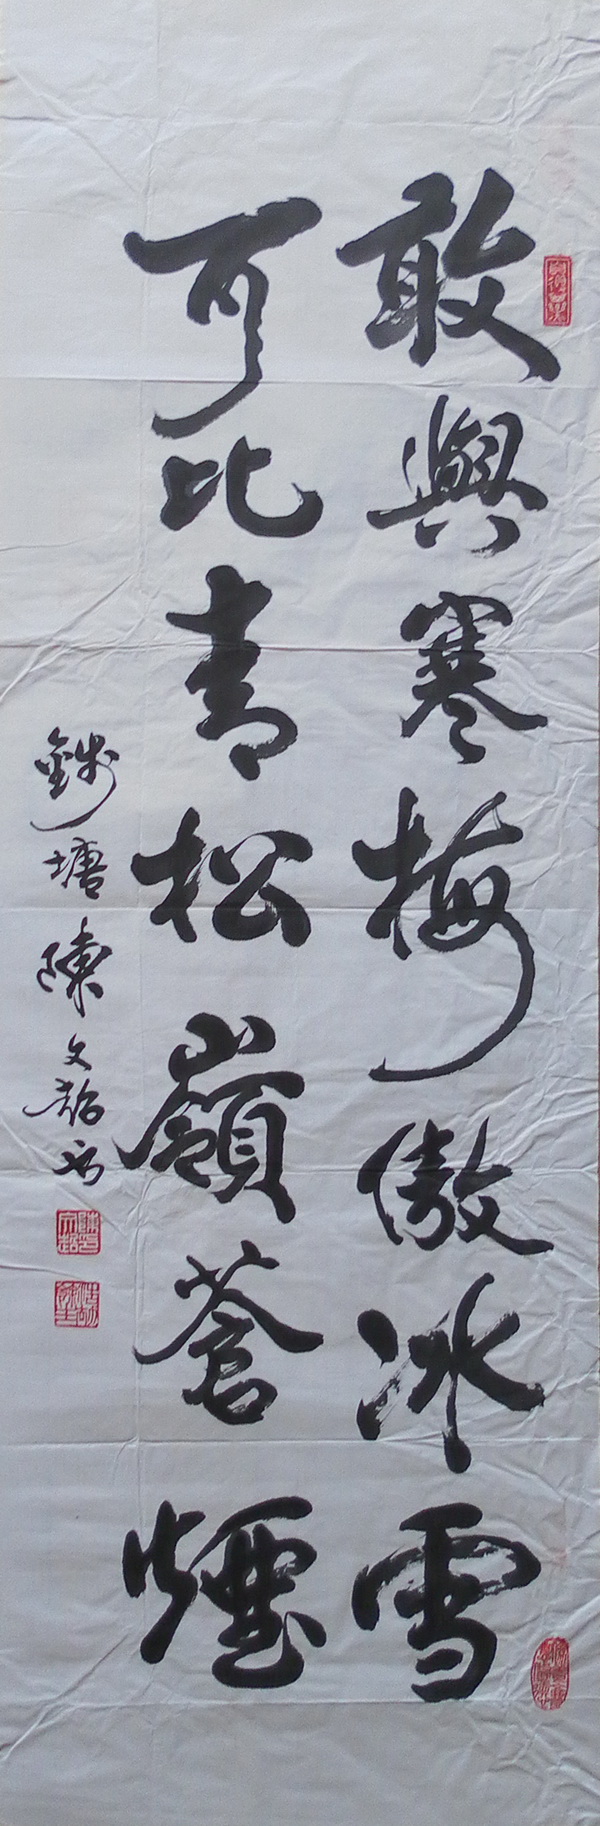 敢與寒梅傲冰雪
可比青松嶺蒼煙
錢塘陳文韶書